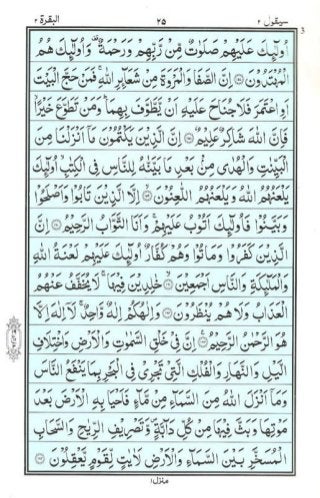 سيقول ٢ ٢٥ البقرة ٢
3
اُولٰٓئِكَ عَلَيْهِمْ صَلَوٰتٌ مِّنْ رَّبِّهِمْ وَرَحْمَةٌ ۟ وَاُولٰٓئِكَ هُمُ
الْمُهْتَدُوْنَ ۝ اِنَّ الصَّفَا وَالْمَرْوَةَ مِنْ شَعَآئِرِ اللّٰهِ ۚ فَمَنْ حَجَّ الْبَيْتَ
اَوِ اعْتَمَرَ فَلَا جُنَاحَ عَلَيْهِ اَنْ يَّطَّوَّفَ بِهِمَا ؕ وَمَنْ تَطَوَّعَ خَيْرًا ۙ
فَاِنَّ اللّٰهَ شَاكِرٌ عَلِيْمٌ ۝ اِنَّ الَّذِيْنَ يَكْتُمُوْنَ مَآ اَنْزَلْنَا مِنَ
الْبَيِّنٰتِ وَالْهُدٰى مِنْۢ بَعْدِ مَا بَيَّنّٰهُ لِلنَّاسِ فِى الْكِتٰبِ ۙ اُولٰٓئِكَ
يَلْعَنُهُمُ اللّٰهُ وَيَلْعَنُهُمُ اللّٰعِنُوْنَ ۝ اِلَّا الَّذِيْنَ تَابُوْا وَاَصْلَحُوْا
وَبَيَّنُوْا فَاُولٰٓئِكَ اَتُوْبُ عَلَيْهِمْ ۚ وَاَنَا التَّوَّابُ الرَّحِيْمُ ۝ اِنَّ
الَّذِيْنَ كَفَرُوْا وَمَاتُوْا وَهُمْ كُفَّارٌ اُولٰٓئِكَ عَلَيْهِمْ لَعْنَةُ اللّٰهِ
وَالْمَلٰٓئِكَةِ وَالنَّاسِ اَجْمَعِيْنَ ۝ خٰلِدِيْنَ فِيْهَا ۚ لَا يُخَفَّفُ عَنْهُمُ
الْعَذَابُ وَلَا هُمْ يُنْظَرُوْنَ ۝ وَاِلٰهُكُمْ اِلٰهٌ وَّاحِدٌ ۚ لَآ اِلٰهَ اِلَّا
هُوَ الرَّحْمٰنُ الرَّحِيْمُ ۝ اِنَّ فِيْ خَلْقِ السَّمٰوٰتِ وَالْاَرْضِ وَاخْتِلَافِ
الَّيْلِ وَالنَّهَارِ وَالْفُلْكِ الَّتِيْ تَجْرِيْ فِى الْبَحْرِ بِمَا يَنْفَعُ النَّاسَ
وَمَآ اَنْزَلَ اللّٰهُ مِنَ السَّمَآءِ مِنْ مَّآءٍ فَاَحْيَا بِهِ الْاَرْضَ بَعْدَ
مَوْتِهَا وَبَثَّ فِيْهَا مِنْ كُلِّ دَآبَّةٍ ۪ وَّتَصْرِيْفِ الرِّيٰحِ وَالسَّحَابِ
الْمُسَخَّرِ بَيْنَ السَّمَآءِ وَالْاَرْضِ لَاٰيٰتٍ لِّقَوْمٍ يَّعْقِلُوْنَ ۝
منزل ۱